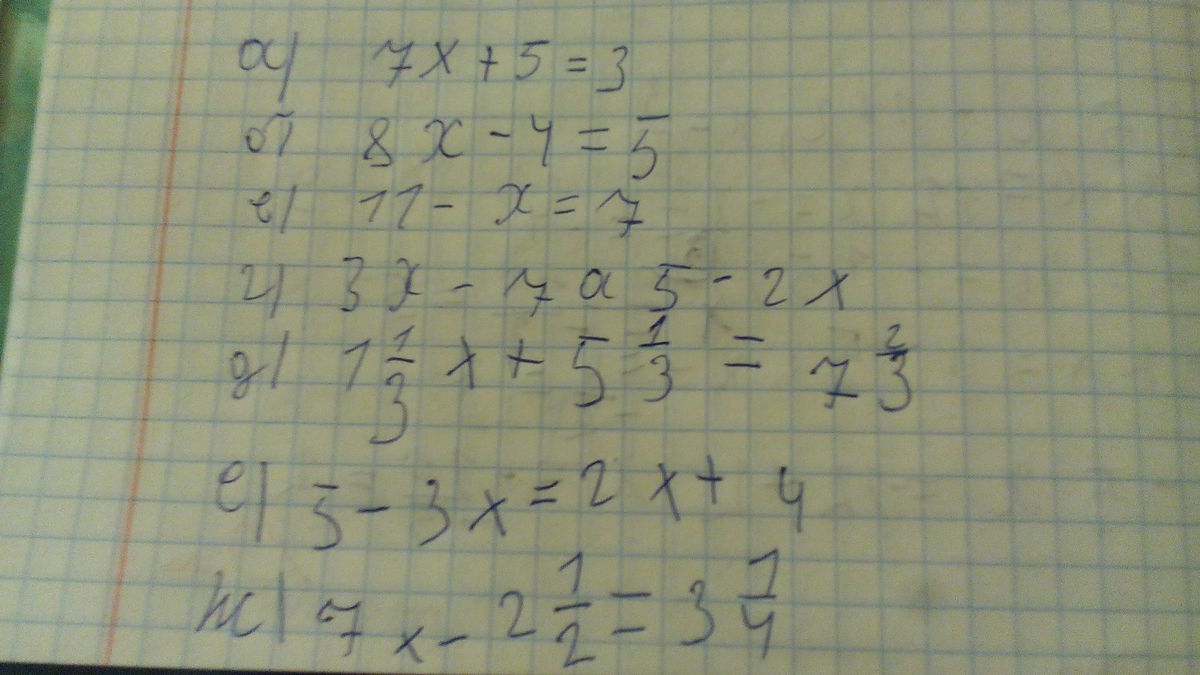 а) 7x + 5 = 3
б) 8x - 4 = 5
в) 11 - x = 7
г) 3x - 7 а 5 - 2x
д) 1 1/3 x + 5 1/3 = 7 2/3
е) 5 - 3x = 2x + 4
ж) 7x - 2 1/2 = 3 1/4